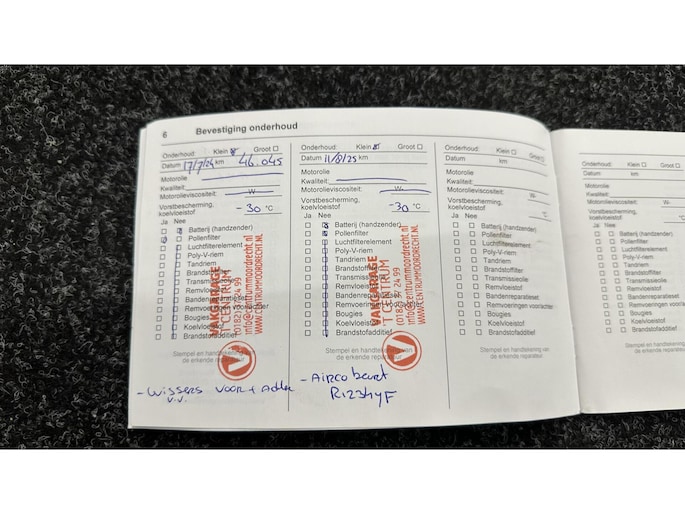 6 Bevestiging onderhoud
Onderhoud: Klein Groot
Datum 17/7/24 km 46.045
Motorolie
Kwaliteit:
Motorolieviscositeit: W-
Vorstbescherming,
koelvloeistof -30 °C
Ja Nee
Batterij (handzender)
Pollenfilter
Luchtfilterelement
Poly-V-riem
Tandriem
Brandstof
Transm
Remvloei
Bandenreparatie
Remvoe
Bougies
Koelvloei
Brandstofadditief
VAKGARAGE
'T CENTRUM
(0182) 34 24 99
info@centrummoordrecht.nl
WWW.CENTRUMMOORDRECHT.NL
Stempel en handtekening van
de erkende reparateur
- Wissers voor + Achter
v.v.
Onderhoud: Klein Groot
Datum 11/8/25 km
Motorolie
Kwaliteit:
Motorolieviscositeit: W-
Vorstbescherming,
koelvloeistof -30 °C
Ja Nee
Batterij (handzender)
Pollenfilter
Luchtfilterelement
Poly-V-riem
Tandriem
Brandstoffilter
Transmissieolie
Remvloeistof
Bandenreparatieset
Remvoeringen voor/achter
Bougies
Koelvloeistof
Brandstofadditief
VAKGARAGE
'T CENTRUM
(0182) 34 24 99
info@centrummoordrecht.nl
WWW.CENTRUMMOORDRECHT.NL
Stempel en handtekening van
de erkende reparateur
- Airco beurt
R1234yF
Onderhoud: Klein Groot
Datum km
Motorolie
Kwaliteit:
Motorolieviscositeit: W-
Vorstbescherming,
koelvloeistof °C
Ja Nee
Batterij (handzender)
Pollenfilter
Luchtfilterelement
Poly-V-riem
Tandriem
Brandstoffilter
Transmissieolie
Remvloeistof
Bandenreparatieset
Remvoeringen voor/achter
Bougies
Koelvloeistof
Brandstofadditief
Stempel en handtekening van
de erkende reparateur
Onderhoud: Klein Groot
Datum km
Motorolie
Kwaliteit:
Motorolieviscositeit: W-
Vorstbescherming,
koelvloeistof °C
Ja Nee
Batterij (handzender)
Pollenfilter
Luchtfilterelement
Poly-V-riem
Tandriem
Brandstoffilter
Transmissieolie
Remvloeistof
Bandenreparatieset
Remvoeringen voor/achter
Bougies
Koelvloeistof
Brandstofadditief
Stempel en handtekening
de erkende reparateur